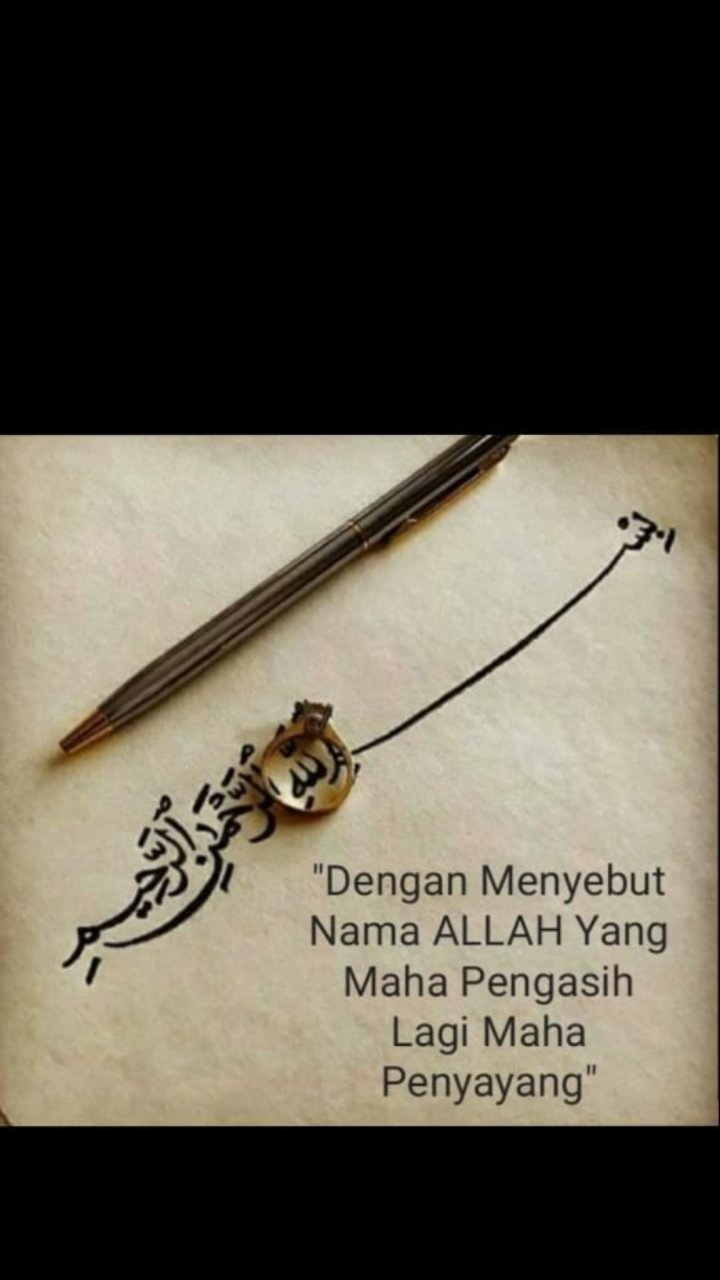 بِسْمِ اللَّهِ الرَّحْمَٰنِ الرَّحِيمِ
"Dengan Menyebut
Nama ALLAH Yang
Maha Pengasih
Lagi Maha
Penyayang"